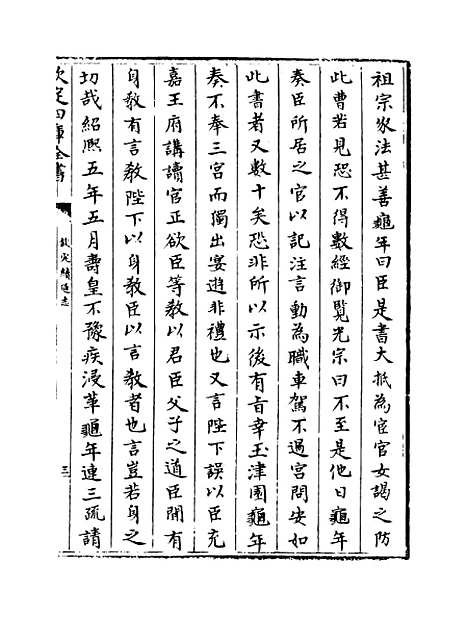 祖宗家法甚善龜年曰臣是書大抵為宦官女謁之防
此曹若見恐不得數經御覽光宗曰不至是他日龜年
奏臣所居之官以記注言動為職車駕不過宮問安如
此書者又數十矣恐非所以示後有旨幸玉津園龜年
奏不奉三宮而獨出宴遊非禮也又言陛下誤以臣充
嘉王府講讀官正欲臣等教以君臣父子之道臣聞有
身教有言教陛下以身教臣以言教者也言豈若身之
切哉紹熙五年五月壽皇不豫疾浸革龜年連三疏請
欽定四庫全書
欽定續通志
三